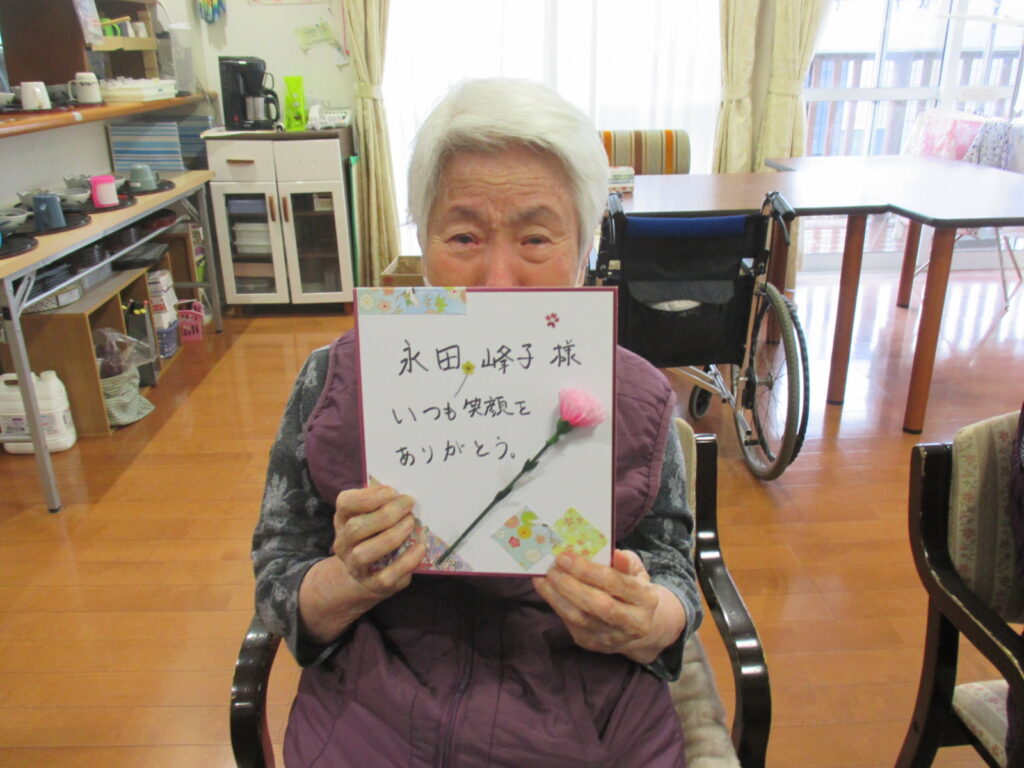 永田峰子様
いつも笑顔を
ありがとう。